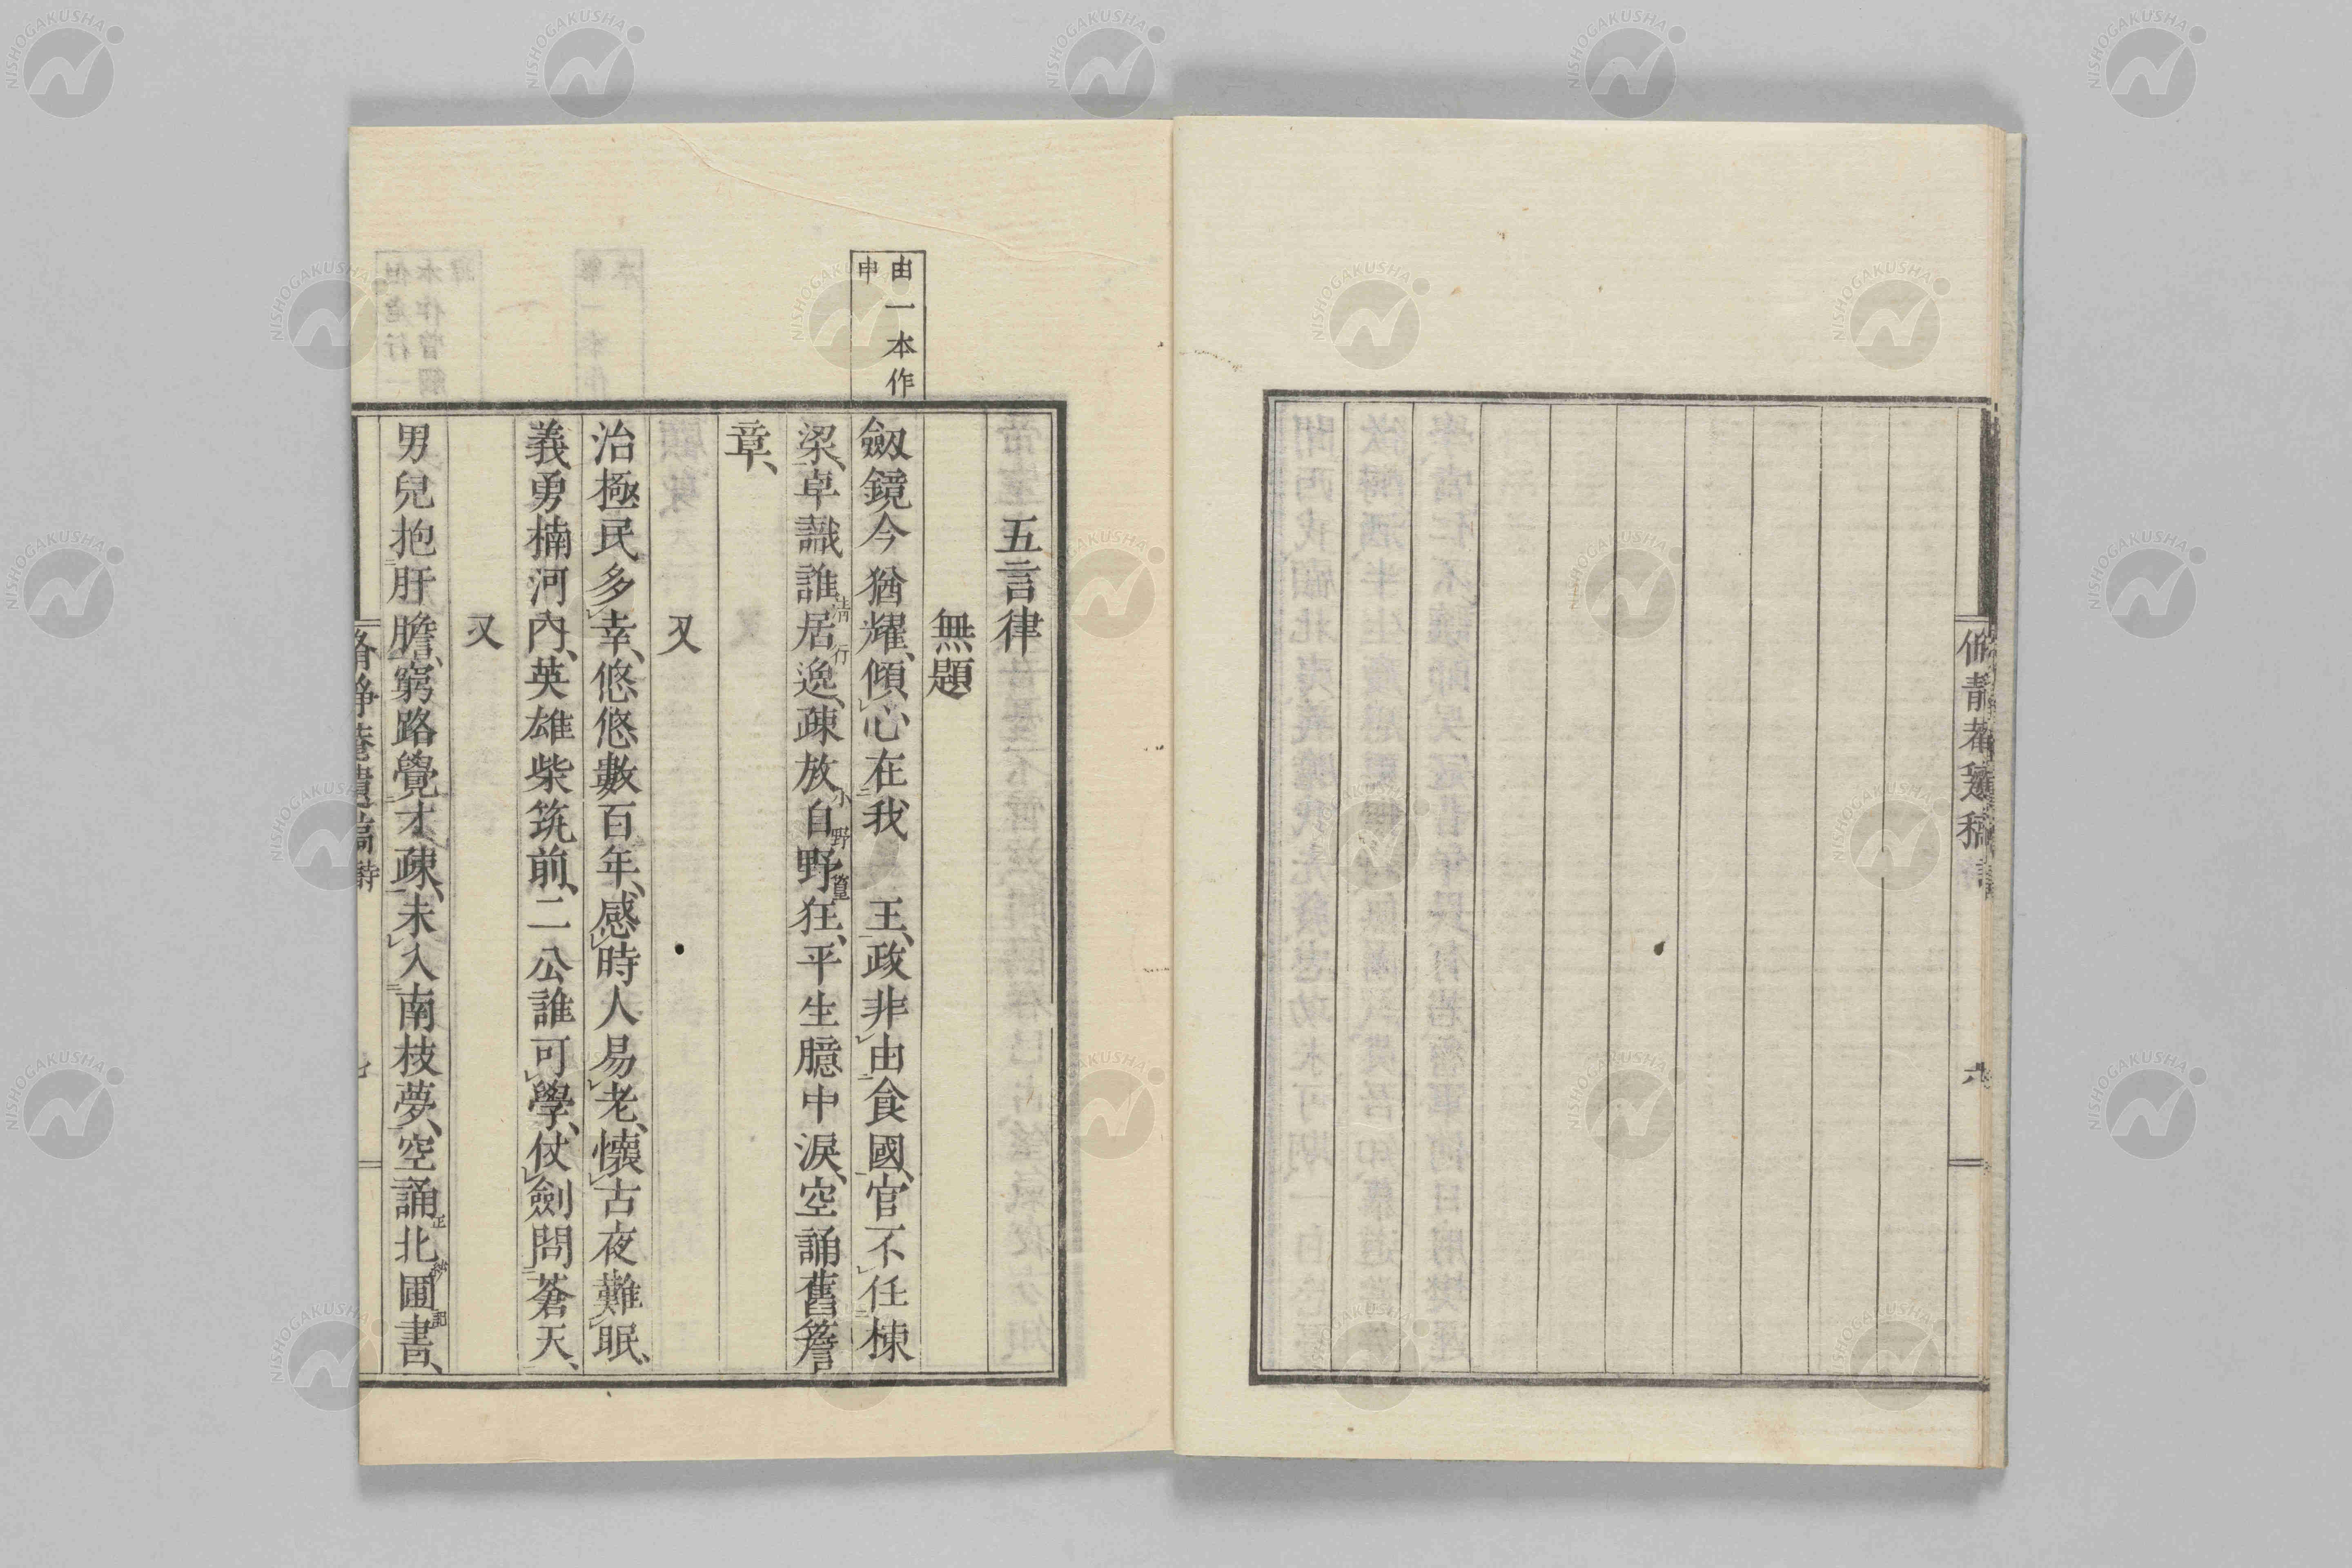 脩靜菴遺稿
六
五言律
無題
由一本作
申
劔鏡今猶耀、傾心在我　王、政非由食國、官不任棟
梁、卓識誰居逸、疎放自野狂、平生臆中淚、空誦舊簷
清行
小野篁
章、
又
治極民多幸、悠悠數百年、感時人易老、懷古夜難眠、
義勇楠河內、英雄柴筑前、二公誰可學、仗劍問蒼天、
又
男兒抱肝膽、窮路覺才疎、未入南枝夢、空誦北圃書、
正紗記
NISHOGAKUSHA